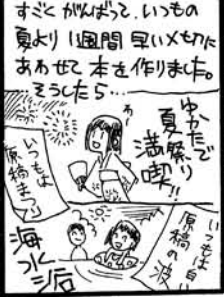 すごくがんばって、いつもの
夏より1週間早い〆切に
あわせて本を作りました。
そうしたら…
ゆかたで
夏祭り
満喫!!
いつもは
原稿まつり
いつもは白い
原稿の波
海水浴